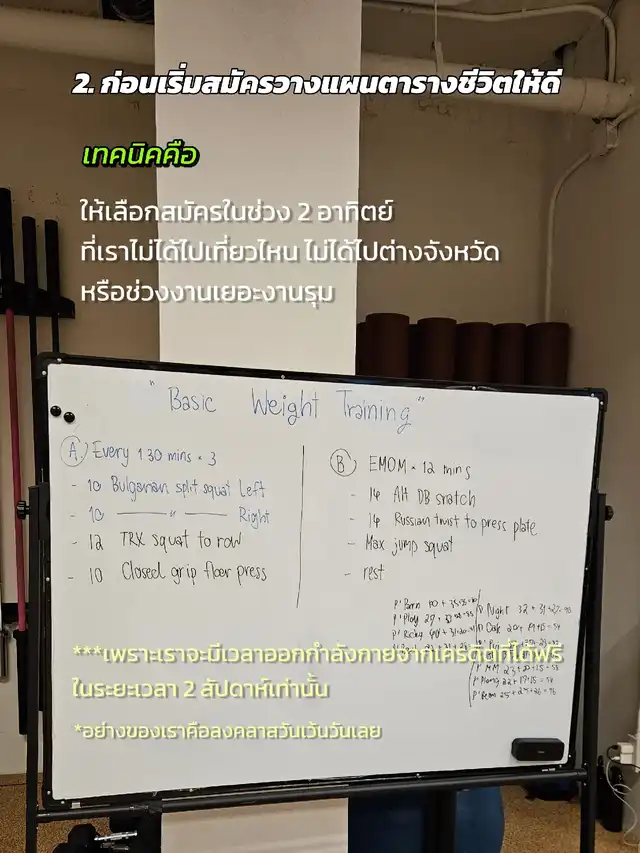 2. ก่อนเริ่มสมัครวางแผนตารางชีวิตให้ดี
เทคนิคคือ
ให้เลือกสมัครในช่วง 2 อาทิตย์
ที่เราไม่ได้ไปเที่ยวไหน ไม่ได้ไปต่างจังหวัด
หรือช่วงงานเยอะงานรุม
"Basic Weight Training"
A Every 1.30 mins × 3
- 10 Bulgarian split squat Left
- 10 —— " —— Right
- 12 TRX squat to row
- 10 Closed grip floor press
B EMOM × 12 mins
- 14 Alt DB snatch
- 14 Russian trust to press plate
- Max jump squat
- rest
P'Ploy
P'Ricky
Night 32 + 31 +
***เพราะเราจะมีเวลาออกกำลังกายจากเครดิตที่ได้ฟรี
ในระยะเวลา 2 สัปดาห์เท่านั้น
*อย่างของเราคือลงคลาสวันเว้นวันเลย